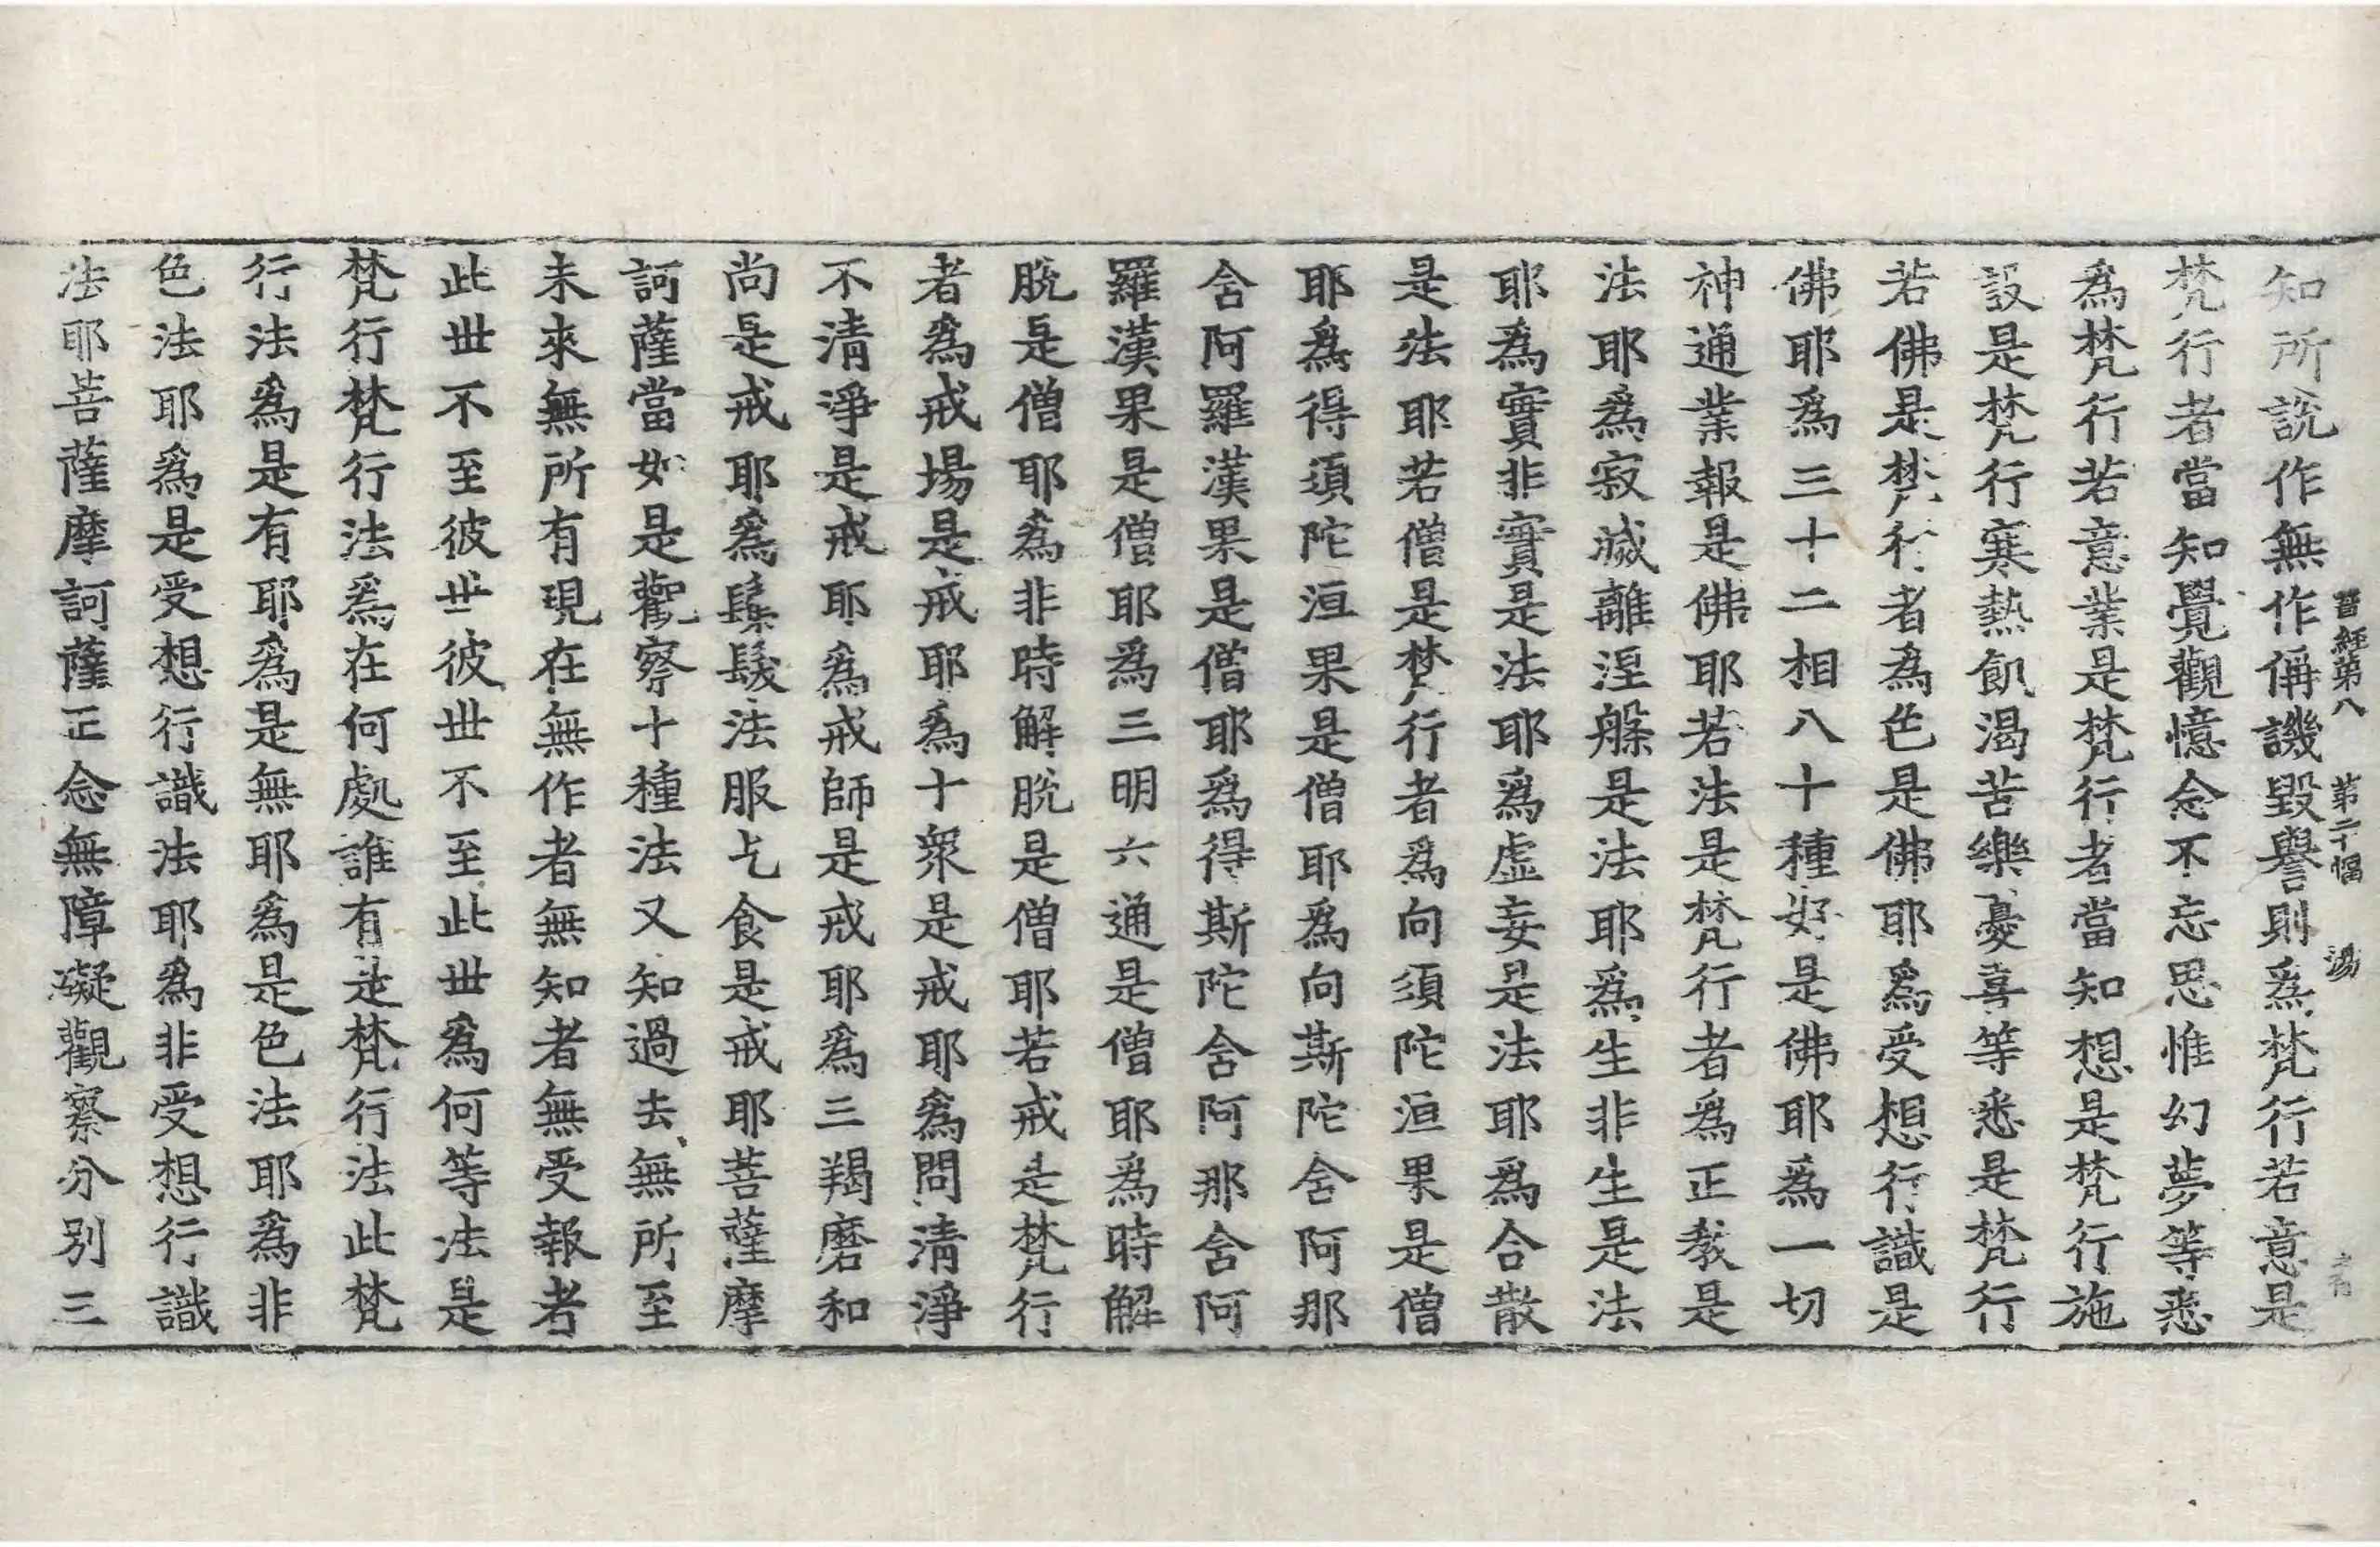 知所說作無作偁譏毀譽則爲梵行若意是
晉經第八 第二十幅 湯
梵行者當知覺觀憶念不忘思惟幻夢等悉
爲梵行若意業是梵行者當知想是梵行施
設是梵行寒熱飢渴苦樂憂喜等悉是梵行
若佛是梵行者爲色是佛耶爲受想行識是
佛耶爲三十二相八十種好是佛耶爲一切
神通業報是佛耶若法是梵行者爲正教是
法耶爲寂滅離涅槃是法耶爲生非生是法
耶爲實非實是法耶爲虛妄是法耶爲合散
是法耶若僧是梵行者爲向須陀洹果是僧
耶爲得須陀洹果是僧耶爲向斯陀含阿那
含阿羅漢果是僧耶爲得斯陀含阿那含阿
羅漢果是僧耶爲三明六通是僧耶爲時解
脫是僧耶爲非時解脫是僧耶若戒是梵行
者爲戒場是戒耶爲十衆是戒耶爲問清淨
不清淨是戒耶爲戒師是戒耶爲三羯磨和
尚是戒耶爲鬀髮法服乞食是戒耶菩薩摩
訶薩當如是觀察十種法又知過去無所至
未來無所有現在無作者無知者無受報者
此世不至彼世彼世不至此世爲何等法是
梵行梵行法爲在何處誰有是梵行法此梵
行法爲是有耶爲是無耶爲是色法耶爲非
色法耶爲是受想行識法耶爲非受想行識
法耶菩薩摩訶薩正念無障礙觀察分別三